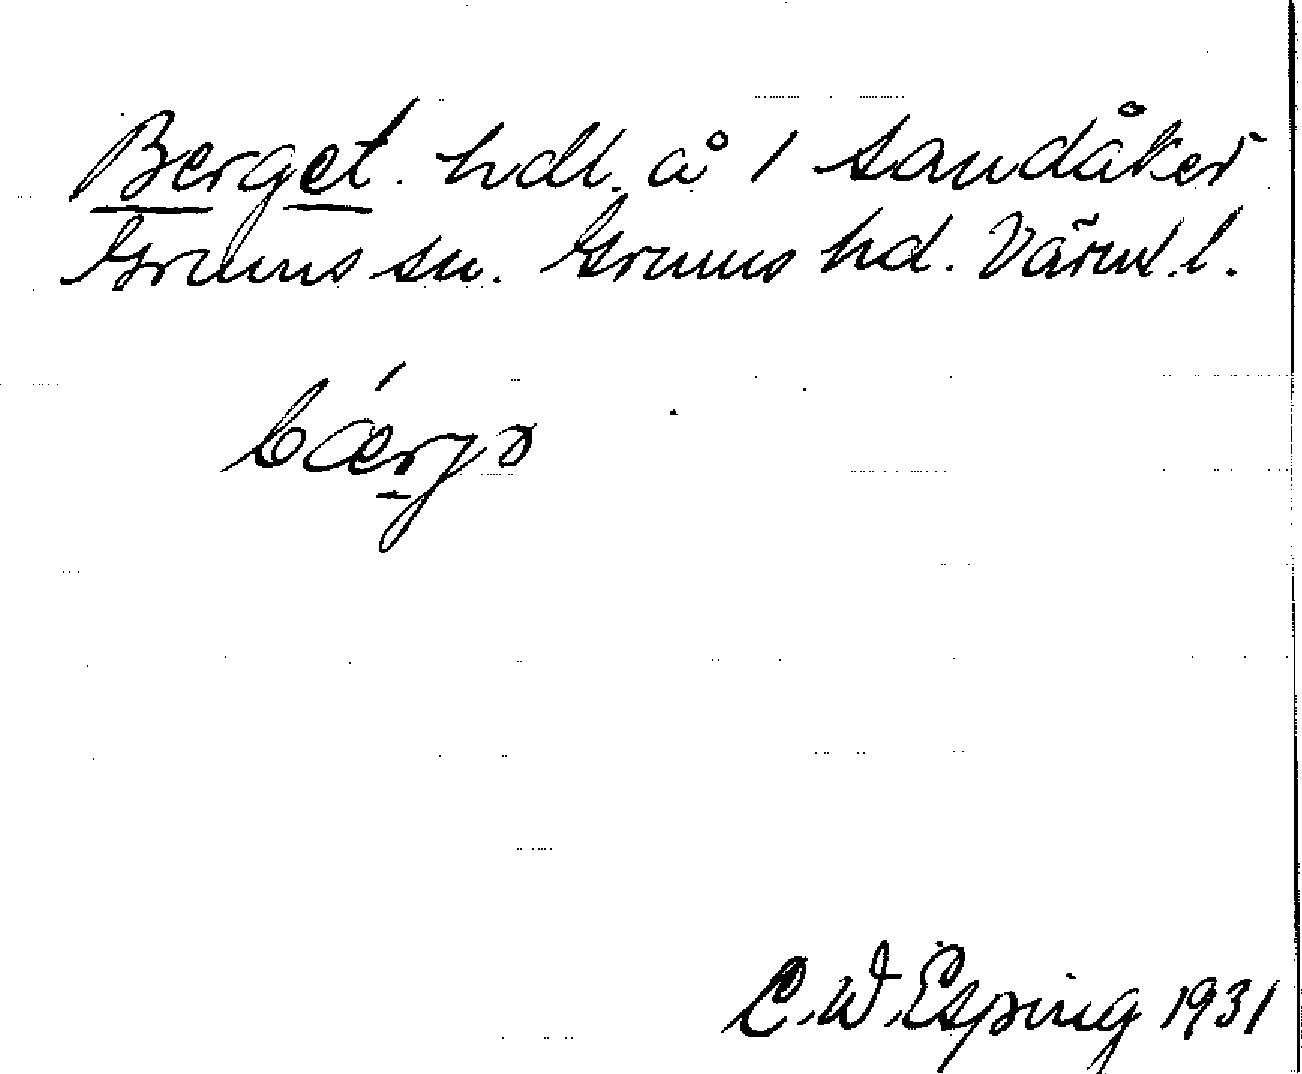 Berget. hdl. å 1 Sandåker
Grums sn. Grums hd. Värml. l.
bǽrjə
C. W. Esping 1931